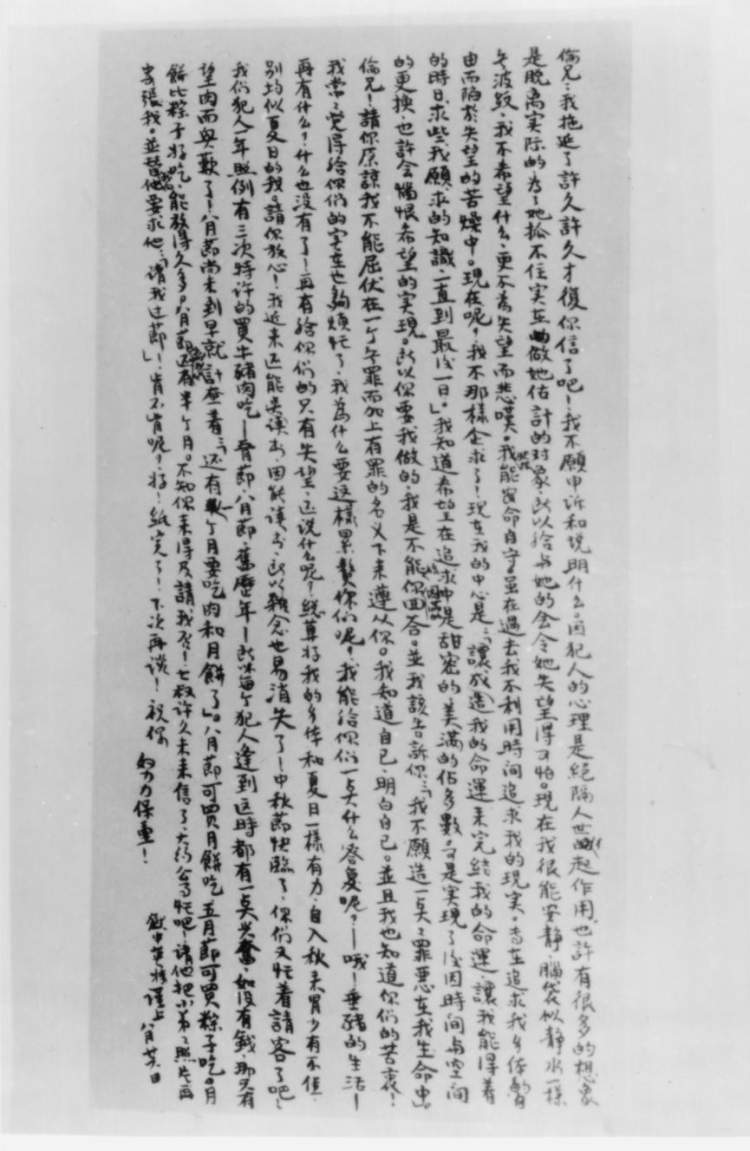 倫兄：我拖延了許久許久才復你信了吧！我不願申诉和说明什么。因犯人的心理是絕隔人世起作用，也許有很多的想象
是脫离实际的，为了她抓不住实在做她估計的对象，所以捨与她的会令她失望得可怕。現在我很能安静，腦袋似静水一样
無波紋，我不希望什么，更不為失望而悲嘆。我能安命自守。虽在過去我不利用時间追求我的現实。
由而陷於失望的苦燥中。現在呢，我不那樣企求了！现在我的中心是：「讓成造我的命運来完結我的命運，讓我能得着
的時日求些我願求的知識，一直到最后一日」。我知道希望在追求中是甜蜜的美滿的佔多數，可是实現了后因時间与空间
的更换，也許会憎恨希望的实现。所以你要我做的，我是不能回答。並我該告訴你：「我不願造一点罪惡在我生命中」
倫兄！請你原諒我不能屈伏在一个無罪而加上有罪的名义下来遵从你。我知道自己，明白自己。並且我也知道你们的苦衷！
我常々觉得給你们的字在也夠煩忙了，我為什么要这樣累贅你们呢！我能给你们一点什么答复呢？——哦！垂豬的生活——
再有什么？什么也没有了！再有给你们的只有失望，还说什么呢！總算好我的身体和夏日一樣有力，自入秋来胃力有不佳，
别均似夏日的我。請你放心！我近来还能夹读书，因能读书，所以雜念也易消失了！中秋節快臨了，你们又忙着請客了吧！
我们犯人一年照例有三次特许的買牛豬肉吃——脊節，八月節，舊曆年——所以每个犯人逢到这時都有一点兴奮，如没有錢，那只有
望肉而興歎了！八月節尚未到早就計应著：「还有个月要吃肉和月餅了」。八月節可買月餅吃，五月節可買粽子吃。月
餅比粽子好吃，能放得久多。八月節还有半个月。不知你来得及請我否！七叔许久未来信了，大约公司忙吧！请他把小弟々照片再
寄張我。並替他要求他：「请我过節」！肯不肯呢！好！紙完了！下次再谈！祝你
努力保重！
中 谨上 八月廿日